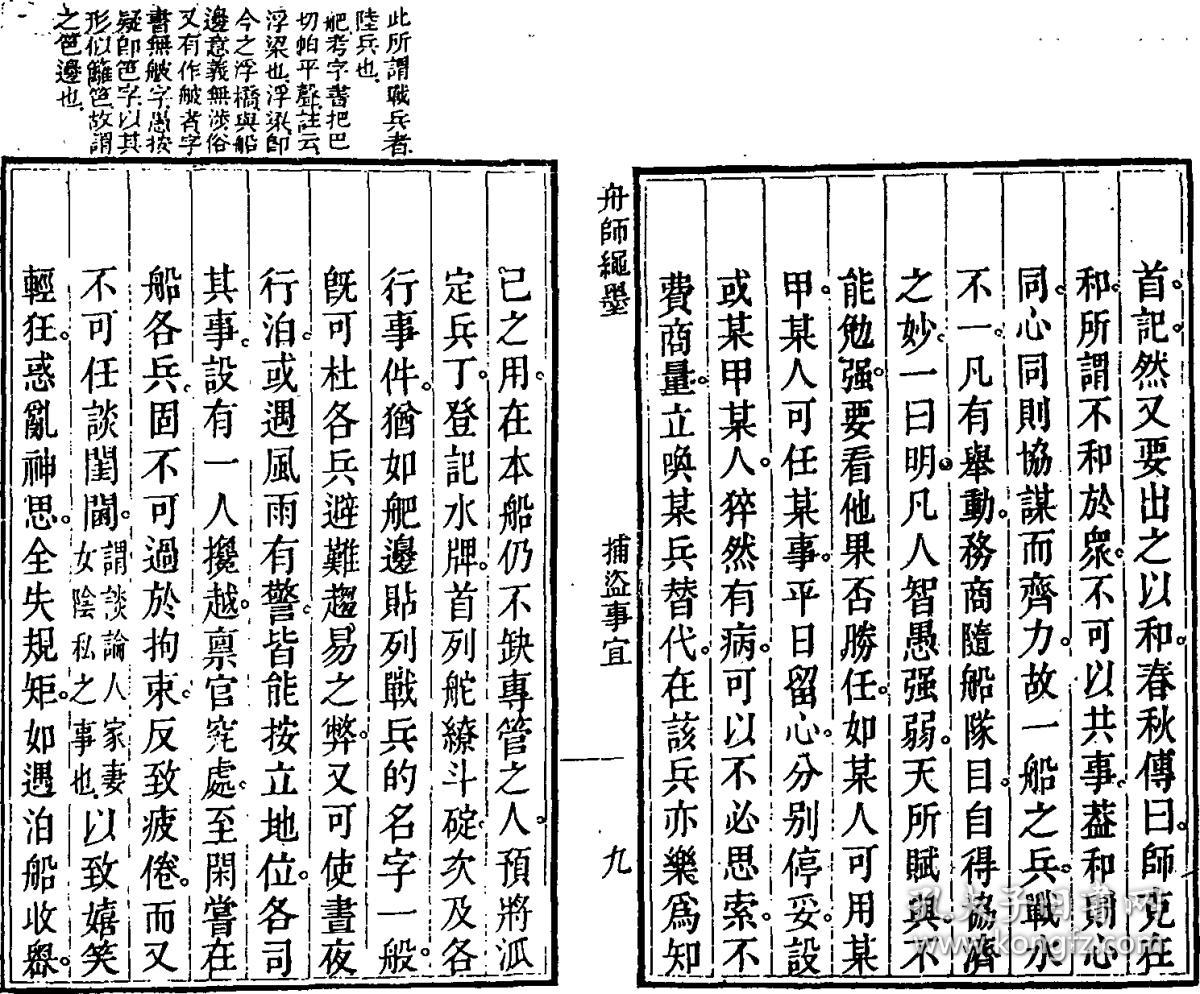 首。記然又要出之以和。春秋傳曰。師克在
和。所謂不和於衆。不可以共事。蓋和則心
同。心同則協謀而齊力。故一船之兵。戰水
不一。凡有舉動。務商隨船隊目。自得協濟
之妙。一曰明。凡人智愚强弱。天所賦與。不
能勉强。要看他果否勝任。如某人可用某
甲。某人可任某事。平日留心。分别停妥。設
或某甲某人。猝然有病。可以不必思索。不
費商量。立喚某兵替代。在該兵亦樂爲知
舟師繩墨
捕盗事宜
九
此所謂戰兵者。
陸兵也。
舥考字書把巴
切帕平聲註云
浮梁也。浮梁即
今之浮橋與船
邊意義無涉俗
又有作䑺者字
書無䑺字愚按
疑即笆字以其
形似籬笆故謂
之笆邊也。
己之用。在本船仍不缺專管之人。預將派
定兵丁。登記水牌。首列舵繚斗碇。次及各
行事件。猶如舥邊貼列戰兵的名字一般。
既可杜各兵避難趨易之弊。又可使晝夜
行泊。或遇風雨有警。皆能按立地位。各司
其事。設有一人攙越。稟官究處。至閑嘗在
船各兵。固不可過於拘束。反致疲倦。而又
不可任談閨閫。謂談論人家妻女陰私之事也。以致嬉笑
輕狂。惑亂神思。全失規矩。如遇泊船收㠀。
孔夫子旧书网
www.kongfz.com